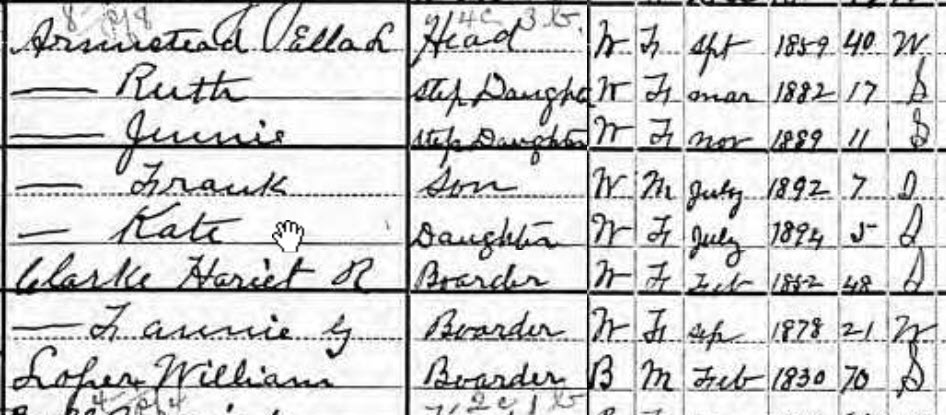 Armistead Ella L Head W F Sept 1859 40 W
— Ruth Step Daughte W F Mar 1882 17 S
— Junie Step Daughter W F Nov 1889 11 S
— Frank Son W M July 1892 7 S
— Kate Daughter W F July 1894 5 S
Clarke Hariet R Boarder W F Feb 1852 48 S
— Fannie G Boarder W F Sep 1878 21 W
Loper William Boarder B M Feb 1830 70 S